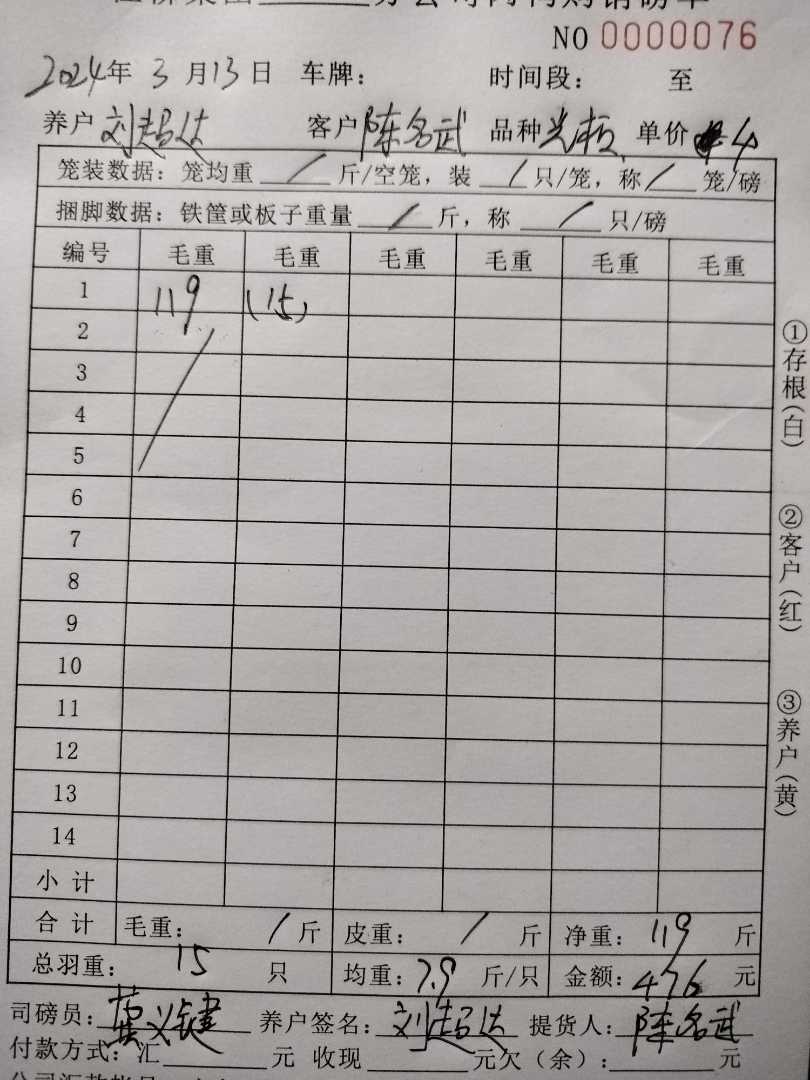 分公司肉鸡购销磅单
NO 0000076
2024年 3 月13日 车牌： 时间段： 至
养户 刘超达 客户 陈名武 品种 单价 4
笼装数据：笼均重 / 斤/空笼，装 / 只/笼，称 / 笼/磅
捆脚数据：铁筐或板子重量 / 斤，称 / 只/磅
编号 毛重 毛重 毛重 毛重 毛重 毛重
1 119 (15)
2
3
4
5
6
7
8
9
10
11
12
13
14
小 计
合 计 毛重： / 斤 皮重： / 斤 净重： 119 斤
总羽重： 15 只 均重：7.9 斤/只 金额：476 元
司磅员： 龚义键 养户签名： 刘超达 提货人： 陈名武
付款方式：汇 元 收现 元欠（余）： 元
①存根(白)
②客户(红)
③养户(黄)